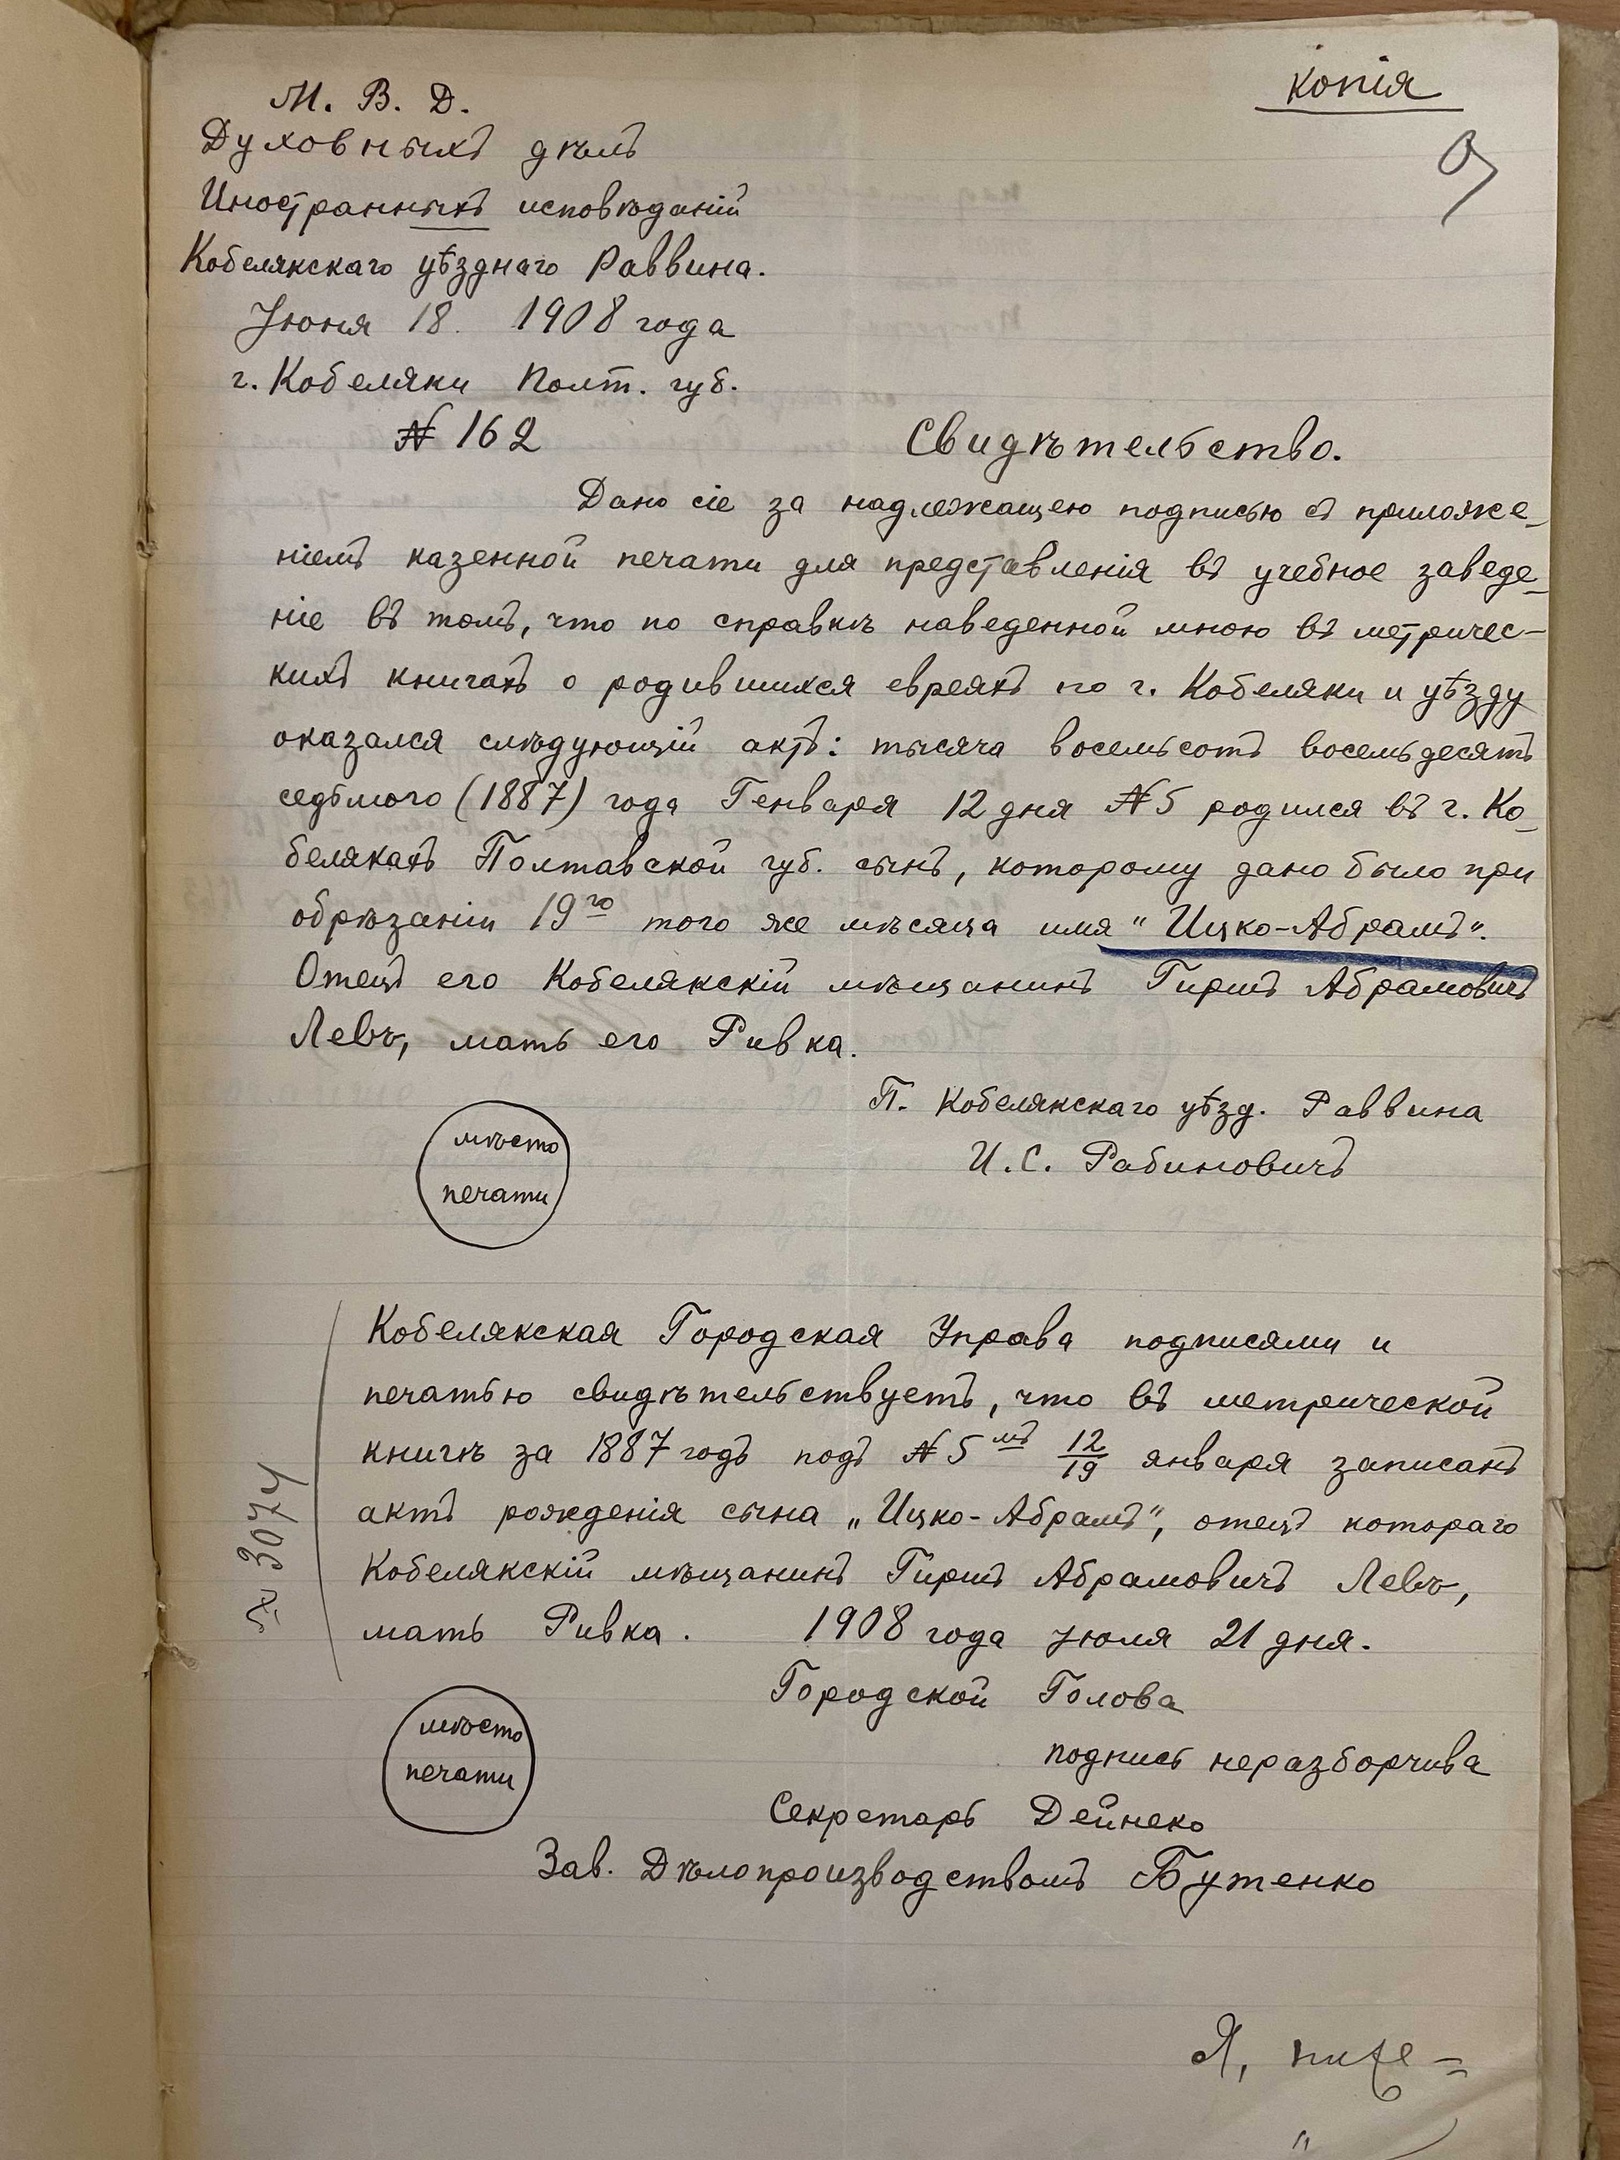 копія
9
М. В. Д.
Духовныхъ дѣлъ
Иностранныхъ исповѣданій
Кобелякскаго уѣзднаго Раввина.
Іюня 18. 1908 года
г. Кобеляки Полт. губ.
№ 162
Свидѣтельство.
Дано сіе за надлежащею подписью съ приложе-
ніемъ казенной печати для представленія въ учебное заведе-
ніе въ томъ, что по справкѣ наведенной мною въ метричес-
кихъ книгахъ о родившихся евреяхъ по г. Кобеляки и уѣзду
оказался слѣдующій актъ: тысяча восемьсотъ восемьдесятъ
седьмого (1887) года Генваря 12 дня №5 родился въ г. Ко-
белякахъ Полтавской губ. сынъ, которому дано было при
обрѣзаніи 19го того же мѣсяца имя "Ицко-Абрамъ".
Отецъ его Кобелякскій мѣщанинъ Гиршъ Абрамовичъ
Левъ, мать его Ривка.
П. Кобелякскаго уѣзд. Раввина
И. С. Рабиновичъ
мѣсто
печати
Кобелякская Городская Управа подписями и
печатью свидѣтельствуетъ, что въ метрической
книгѣ за 1887 годъ подъ №5мъ 12/19 января записанъ
актъ рожденія сына „Ицко-Абрамъ", отецъ котораго
Кобелякскій мѣщанинъ Гиршъ Абрамовичъ Левъ,
мать Ривка. 1908 года Іюля 21 дня.
№ 3074
Городской Голова
подпись неразборчива
мѣсто
печати
Секретарь Дейнеко
Зав. Дѣлопроизводствомъ Бутенко
Я, ниже=